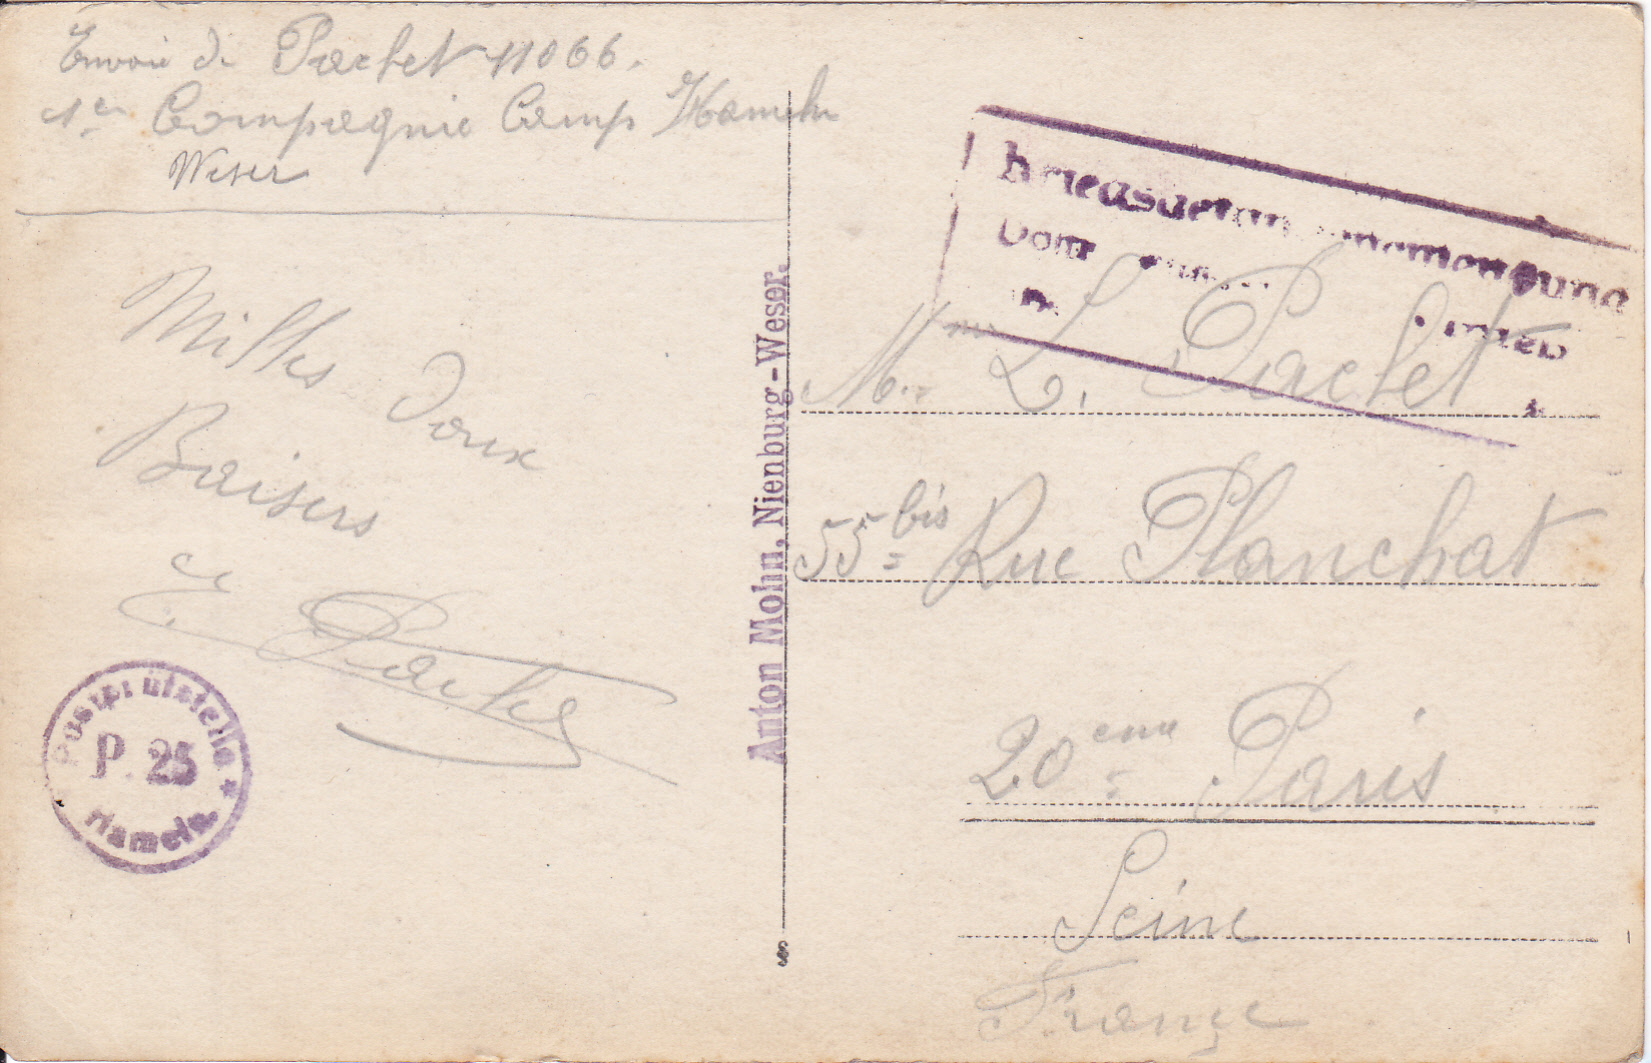 Envoie de Pachet 11066.
1ère Compagnie Camp Hameln
Weser
Milles doux
Baisers
E. Pachet
Postprüfstelle
P. 25
Hameln
Anton Mohn, Nienburg-Weser.
Kriegsgefangenensendung
Mme L. Pachet
55 bis Rue Planchat
20eme Paris
Seine
France